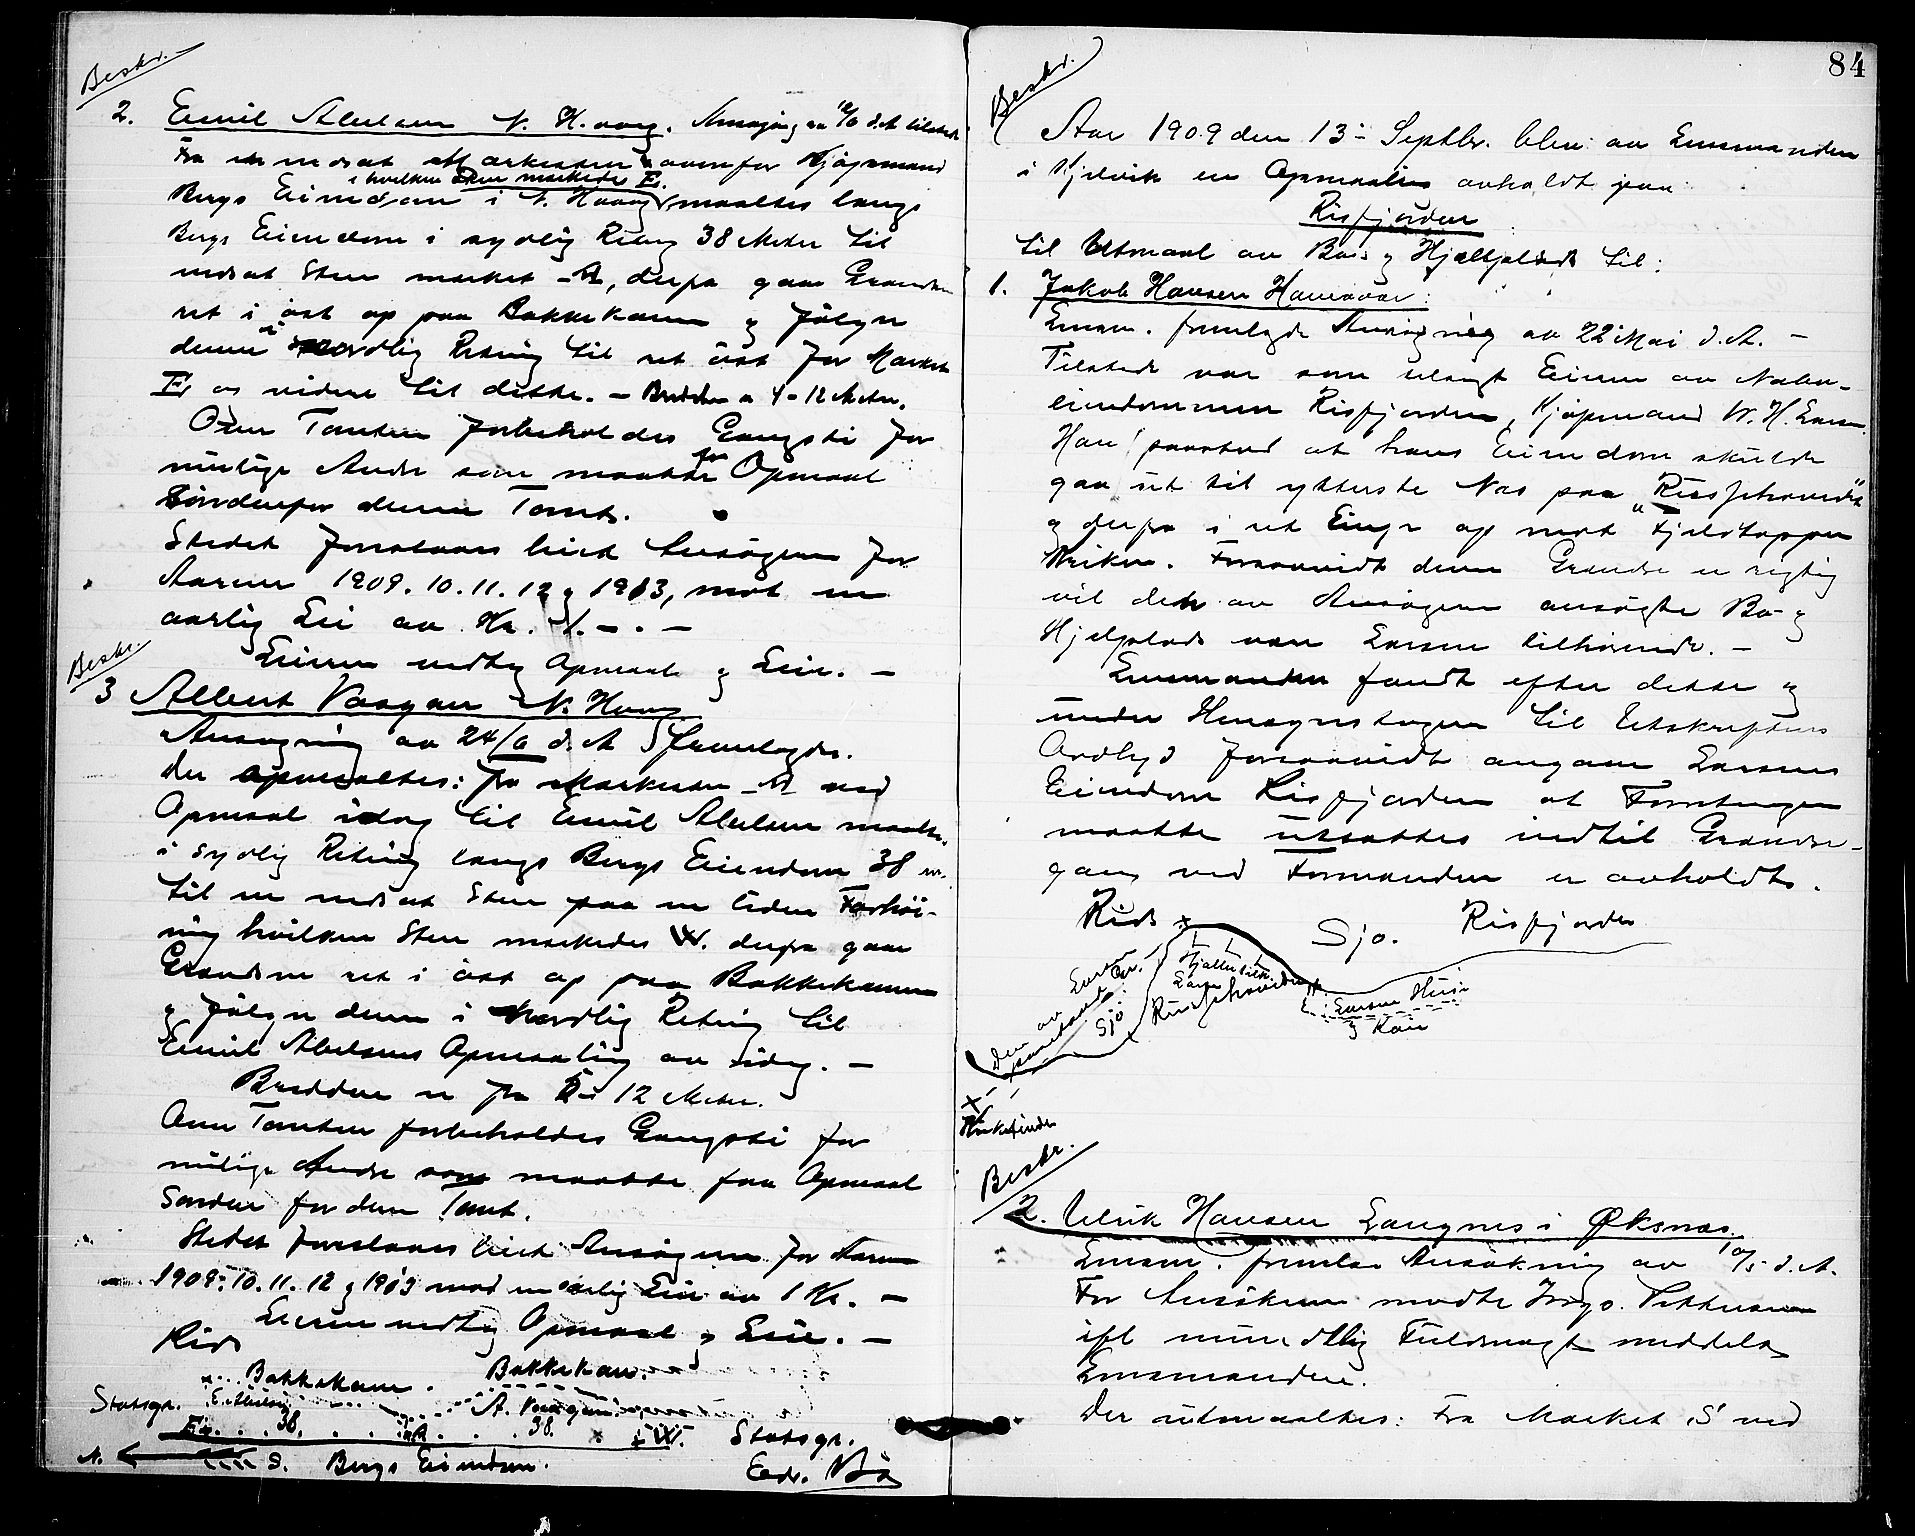 Beskr.
2. Emil Abelsen N. H.vaag. Ansøgning av d.A
Fra en nedsat ovenfor Kjøpmand
i hvilken Sten merkedes E.
Bergs Eiendom i N. maaltes langs
Bergs Eiendom i sydlig Retng 38 Meter til
nedsat Sten merket A, derfra gaar Grændsen
ret i øst op paa Bakkekamen og følger
denne i nordlig Retning til ret øst for Merket
E og videre til dette. – Bredden 4-12 Meter.
Over Tomten forbeholdes Gangsti for
mulige Andre som maatte faa Opmaal
Søndenfor denne Tomt.
Stedet foreslaaes leiet Ansøgeren for
Aarene 1909. 10. 11. 12 og 1913, mot en
aarlig Lei av Kr. 1. – . –
Eieren vedtog Opmaal og Leie. –
Beskr.
3 Albert Vaagan N.
Ansøgning av 24/6 d. A fremlagdes.
Der opmaaltes: fra Merkesten A ved
Opmaal idag til Emil Abelsen maaltes
i sydlig Retning langs Bergs Eiendom 38 m.
til en nedsat Sten paa en liden Forhøi-
ning hvilken Sten merkedes W. derfra gaar
Grændsen ret i øst op paa Bakkekamen
og følger denne i Nordlig Retning til
Emil Abelsens Opmaaling av idag. –
Bredden er fra 5 – 12 Meter.
Over Tomten forbeholdes Gangsti for
mulige Andre som maatte faa Opmaal
Sønden for denne Tomt.
Stedet foreslaaes leiet Ansøgeren for Aarene
1909. 10. 11. 12 og 1913 mod en aarlig Leie av 1 Kr. –
Eieren vedtog Opmaal og Leie. –
Rids
Bakkekam. Bakkekam.
Statsgr. E. Abelsen A. Vaagan
E. . . 38. . . . A. . . . 38. x W. Statsgr.
N. S. Bergs Eiendom. Edv. Bø
84
Beskr.
Aar 1909 den 13– Septbr. blev av Lensmanden
i Kjelvik en Opmaaling avholdt paa
Risfjorden
til Utmaal av Bo- og Hjeltplads til:
1. Jakob Hansen
Lensm. fremlagde Ansøgning av 22 Mai d. A. –
Tilstede var som Eieren av Nabo-
eiendommen Risfjorden, Kjøpmand W. H. Larsen.
Han paastod at hans Eiendom skulde
gaa ut til ytterste Nes paa "
og derfra i ret Linje op mot Fjeldtoppen
Forsaavidt denne Grændse er rigtig
vil den av Ansøgeren ansøgte Bo- og
Hjelplads være Larsen tilhørende. –
Lensmanden fandt efter dette og
under Hensyntagen til Utskriftens
Ordlyd forsaavidt angaar Larsens
Eiendom Risfjorden at Forretningen
maatte utsættes indtil Grændse-
gang ved Formanden er avholdt.
Rids Sjø. Risfjorden
Hjeller tilh.
Larsen
Den av Larsen
paastaaede Gr.
Sjø
Larsens Huse
og Kai
Beskr.
2. Ulrik Hansen Langnes i Øksnes.
Lensm. fremla Ansøkning av 10/5 d. A.
For Ansøkeren mødte
ifl mundtlig Fuldmagt meddelt
Lensmanden.
Der utmaaltes: Fra Merket S ved